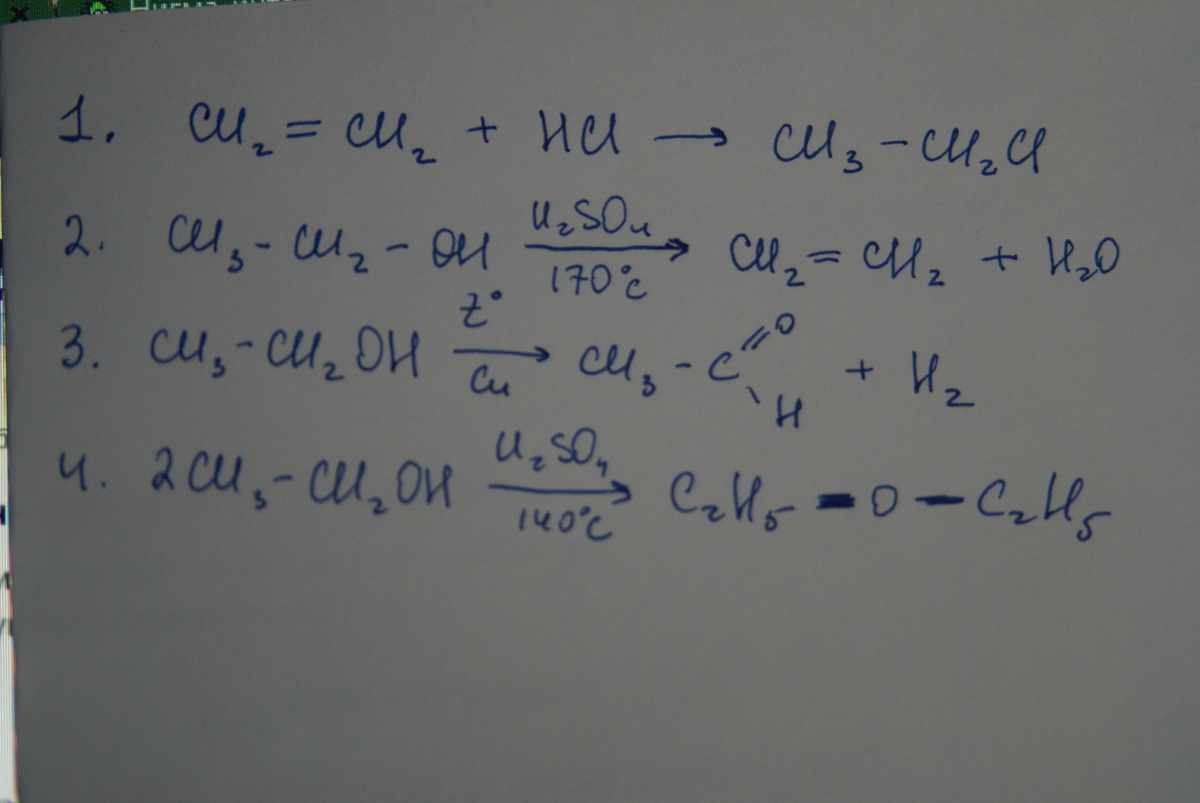 1. CH₂ = CH₂ + HCl → CH₃ – CH₂Cl
2. CH₃ – CH₂ – OH H₂SO₄ 170°C → CH₂ = CH₂ + H₂O
3. CH₃ – CH₂OH t° Cu → CH₃ – C =O –H + H₂
4. 2CH₃ – CH₂OH H₂SO₄ 140°C → C₂H₅ – O – C₂H₅